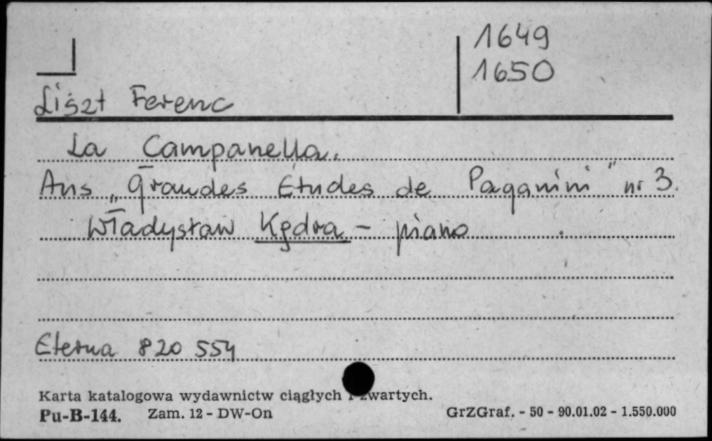 1649
1650
Liszt Ferenc
La Campanella.
Aus „Grandes Etudes de Paganini" nr 3.
Władysław Kędra - piano
Eterna 820 554
Karta katalogowa wydawnictw ciągłych i zwartych.
Pu-B-144. Zam. 12 - DW-On GrZGraf. - 50 - 90.01.02 - 1.550.000